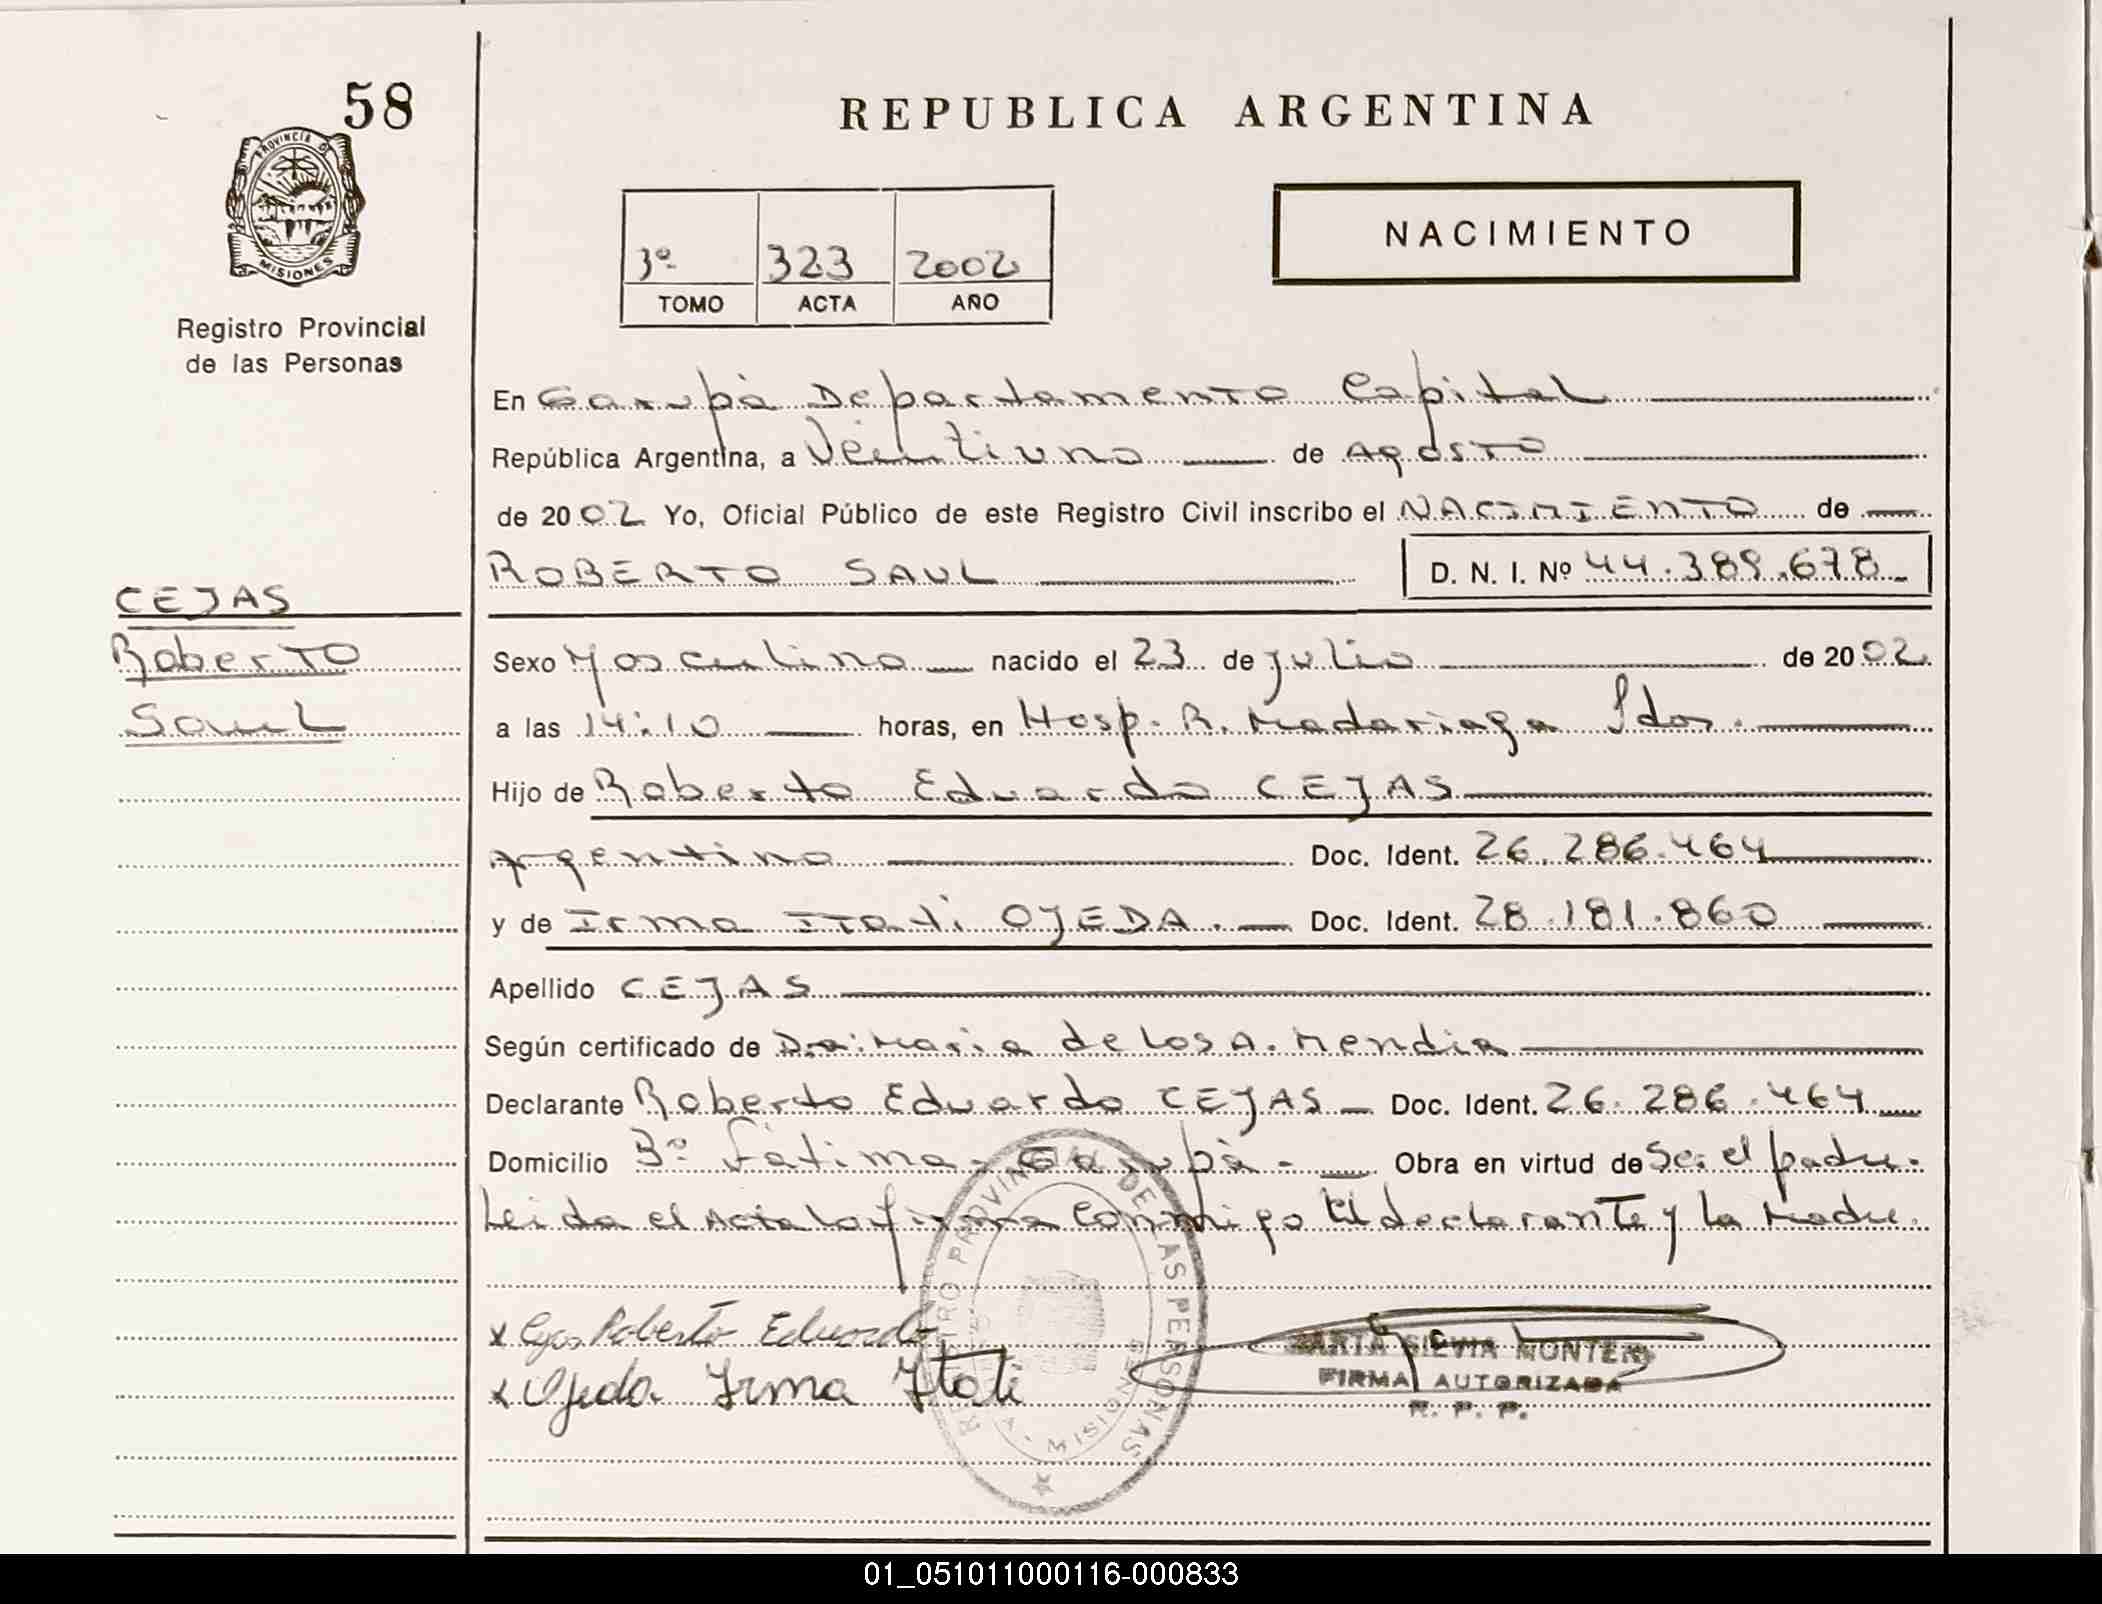 58
REPUBLICA ARGENTINA
PROVINCIA DE
MISIONES
Registro Provincial
de las Personas
3º 323 2002
TOMO ACTA AÑO
NACIMIENTO
En Garupá Departamento Capital
República Argentina, a Veintiuno de Agosto
de 2002 Yo, Oficial Público de este Registro Civil inscribo el NACIMIENTO de
ROBERTO SAUL D. N. I. Nº 44.389.678
CEJAS
Roberto
Saul
Sexo Masculino nacido el 23 de julio de 2002
a las 14:10 horas, en Hosp. R. Madariaga Pdas.
Hijo de Roberto Eduardo CEJAS
Argentino Doc. Ident. 26.286.464
y de Irma Itati OJEDA. Doc. Ident. 28.181.860
Apellido CEJAS
Según certificado de Dra: Maria de los A. Mendia
Declarante Roberto Eduardo CEJAS Doc. Ident. 26.286.464
Domicilio Bº Fátima - Garupá - Obra en virtud de Ser el padre.
Leida el Acta la firma conmigo El declarante y la Madre.
REGISTRO PROVINCIAL DE LAS PERSONAS
MISIONES
x Cejas Roberto Eduardo
x Ojeda Irma Itati
MARTA SILVIA MONTERO
FIRMA AUTORIZADA
R. P. P.
01_051011000116-000833